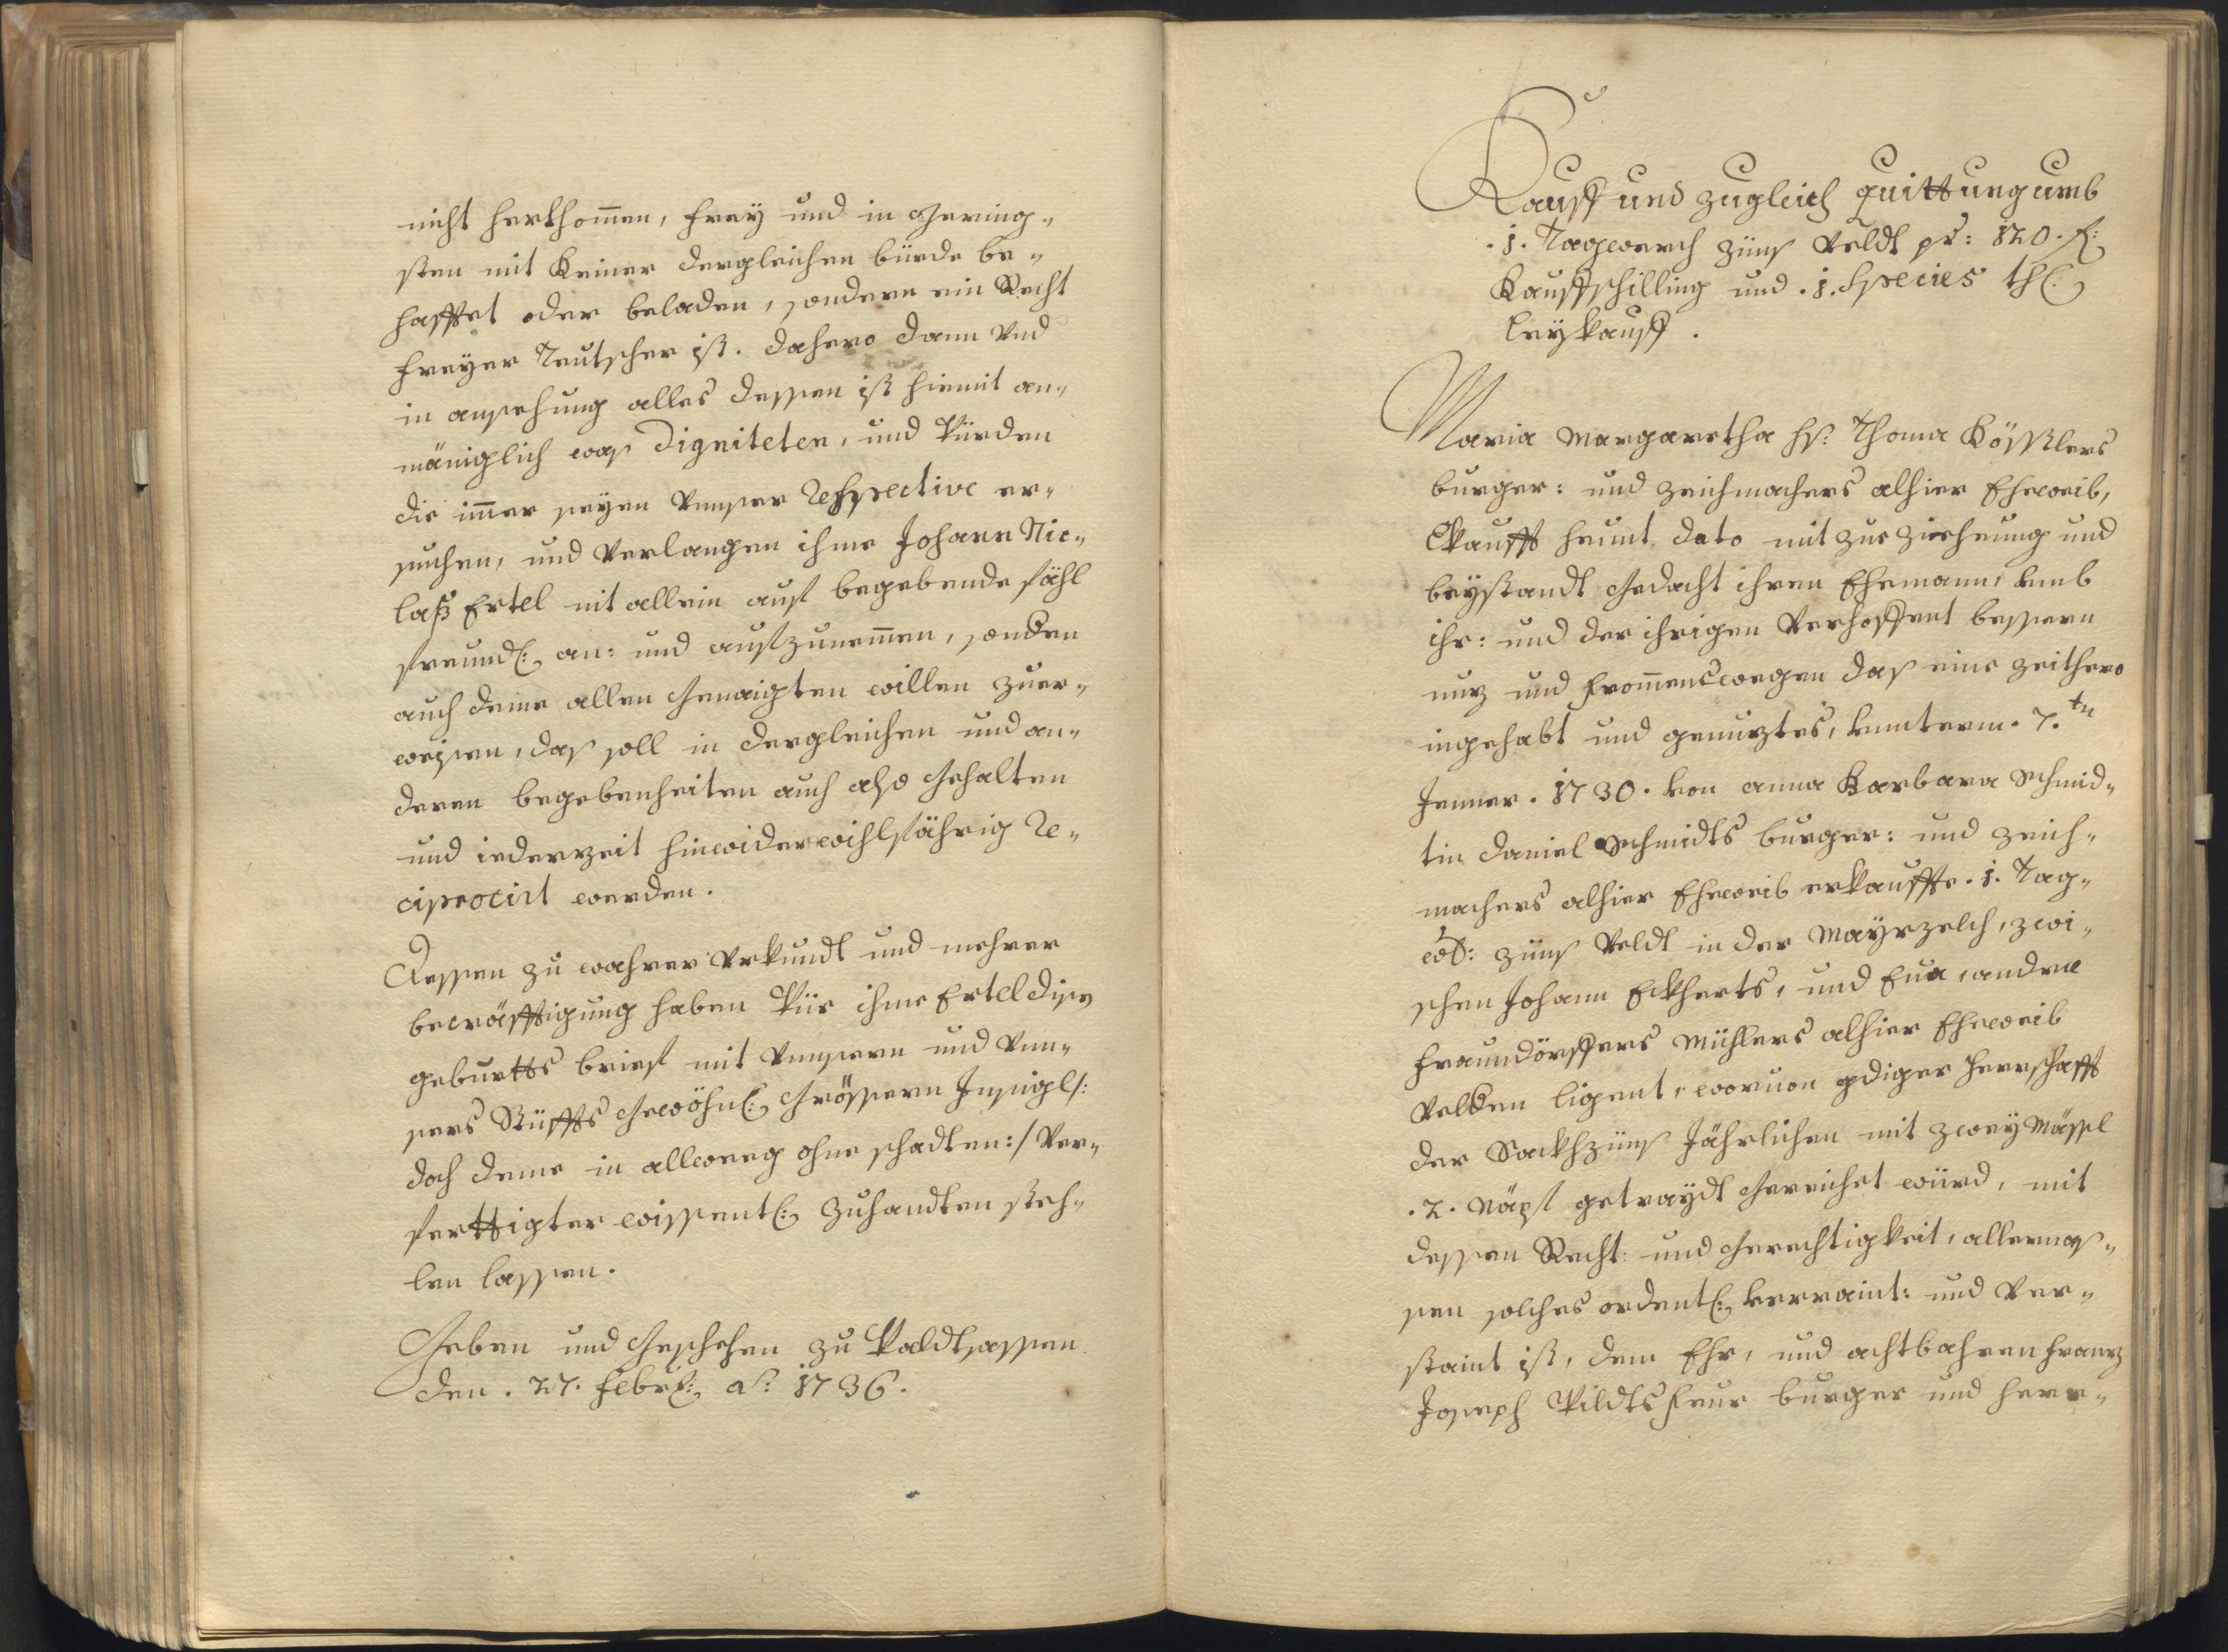 nicht herkhom̄en, frey und in Gering„
sten mit Keiner dergleichen bürde be„
hafftet oder beladen, sondern ein Recht
freyer Teutscher ist. dahero dann Und
in ansehung alles dessen ist hiemit an„
mäniglich was Digniteten, und Würden
die im̄er seyen Unnser Respective er„
suchen, und Verlangen ihme Johann Nic„
laß Ertel nit allein auf begebende fähl
freundl: an: und aufzunem̄en, sondern
auch deme allen Genaigten willen zuer„
weisen, das soll in dergleichen und an„
deren begebenheiten auch also Gehalten
und iederzeit hinwider wihlfährig Re„
ciprocirt werden.
Dessen zu wahrer Urkundt und mehrer
becräfftigung haben Wür ihme Ertel disen
geburtts brief mit Unnsern und Unn„
sers Stüffts Gewöhnl: Grössern Insigl /:
doch deme in allweeg ohne schadten :/ Ver„
ferttigter wissentl: Zuhandten steh„
len lassen.
Geben und Geschehen zu Waldtsassen
den . 27. Febr: aō: 1736.
Kauff und zugleich quittung umb
. 1. Tagwerch zünß Veldt pr: 120. fl:
Kauffschilling und . 1. Species thl:
leykauff .
Maria Margaretha hß: Thoma Kösstlers
burger: und Zeichmachers alhier Eheweib,
Vkaufft heunt dato mit zue ziehung und
beystandt Gedacht ihren Ehemann, umb
ihr: und der ihrigen Verhoffent bessern
nuz und from̄enswegen das eine zeithero
ingehabt und genuztes, unnterm . 7.tn
Jenner . 1730 . von anna Barbara Schmid„
tin Daniel Schmidts burger: und zeich„
machers alhier Eheweib erkauffte . 1. Tag„
w: zünß Veldt in der Mayrzelch, zwi„
schen Johann Eckherts, und Eua, andree
Fraundörffers Müllers alhier Eheweib
Veldern ligent, woruon gdiger Herrschafft
der Sackhzünß Jährlichen mit zwey Mässl
. 2. Näpf getraydt Gereichet würd, mit
dessen Recht: und Gerechtigkeit, allermas„
sen solches ordentl: verraint: und Ver„
staint ist, dem Ehr, und achtbahren Franz
Joseph Wildtsfeur burger und Herr„